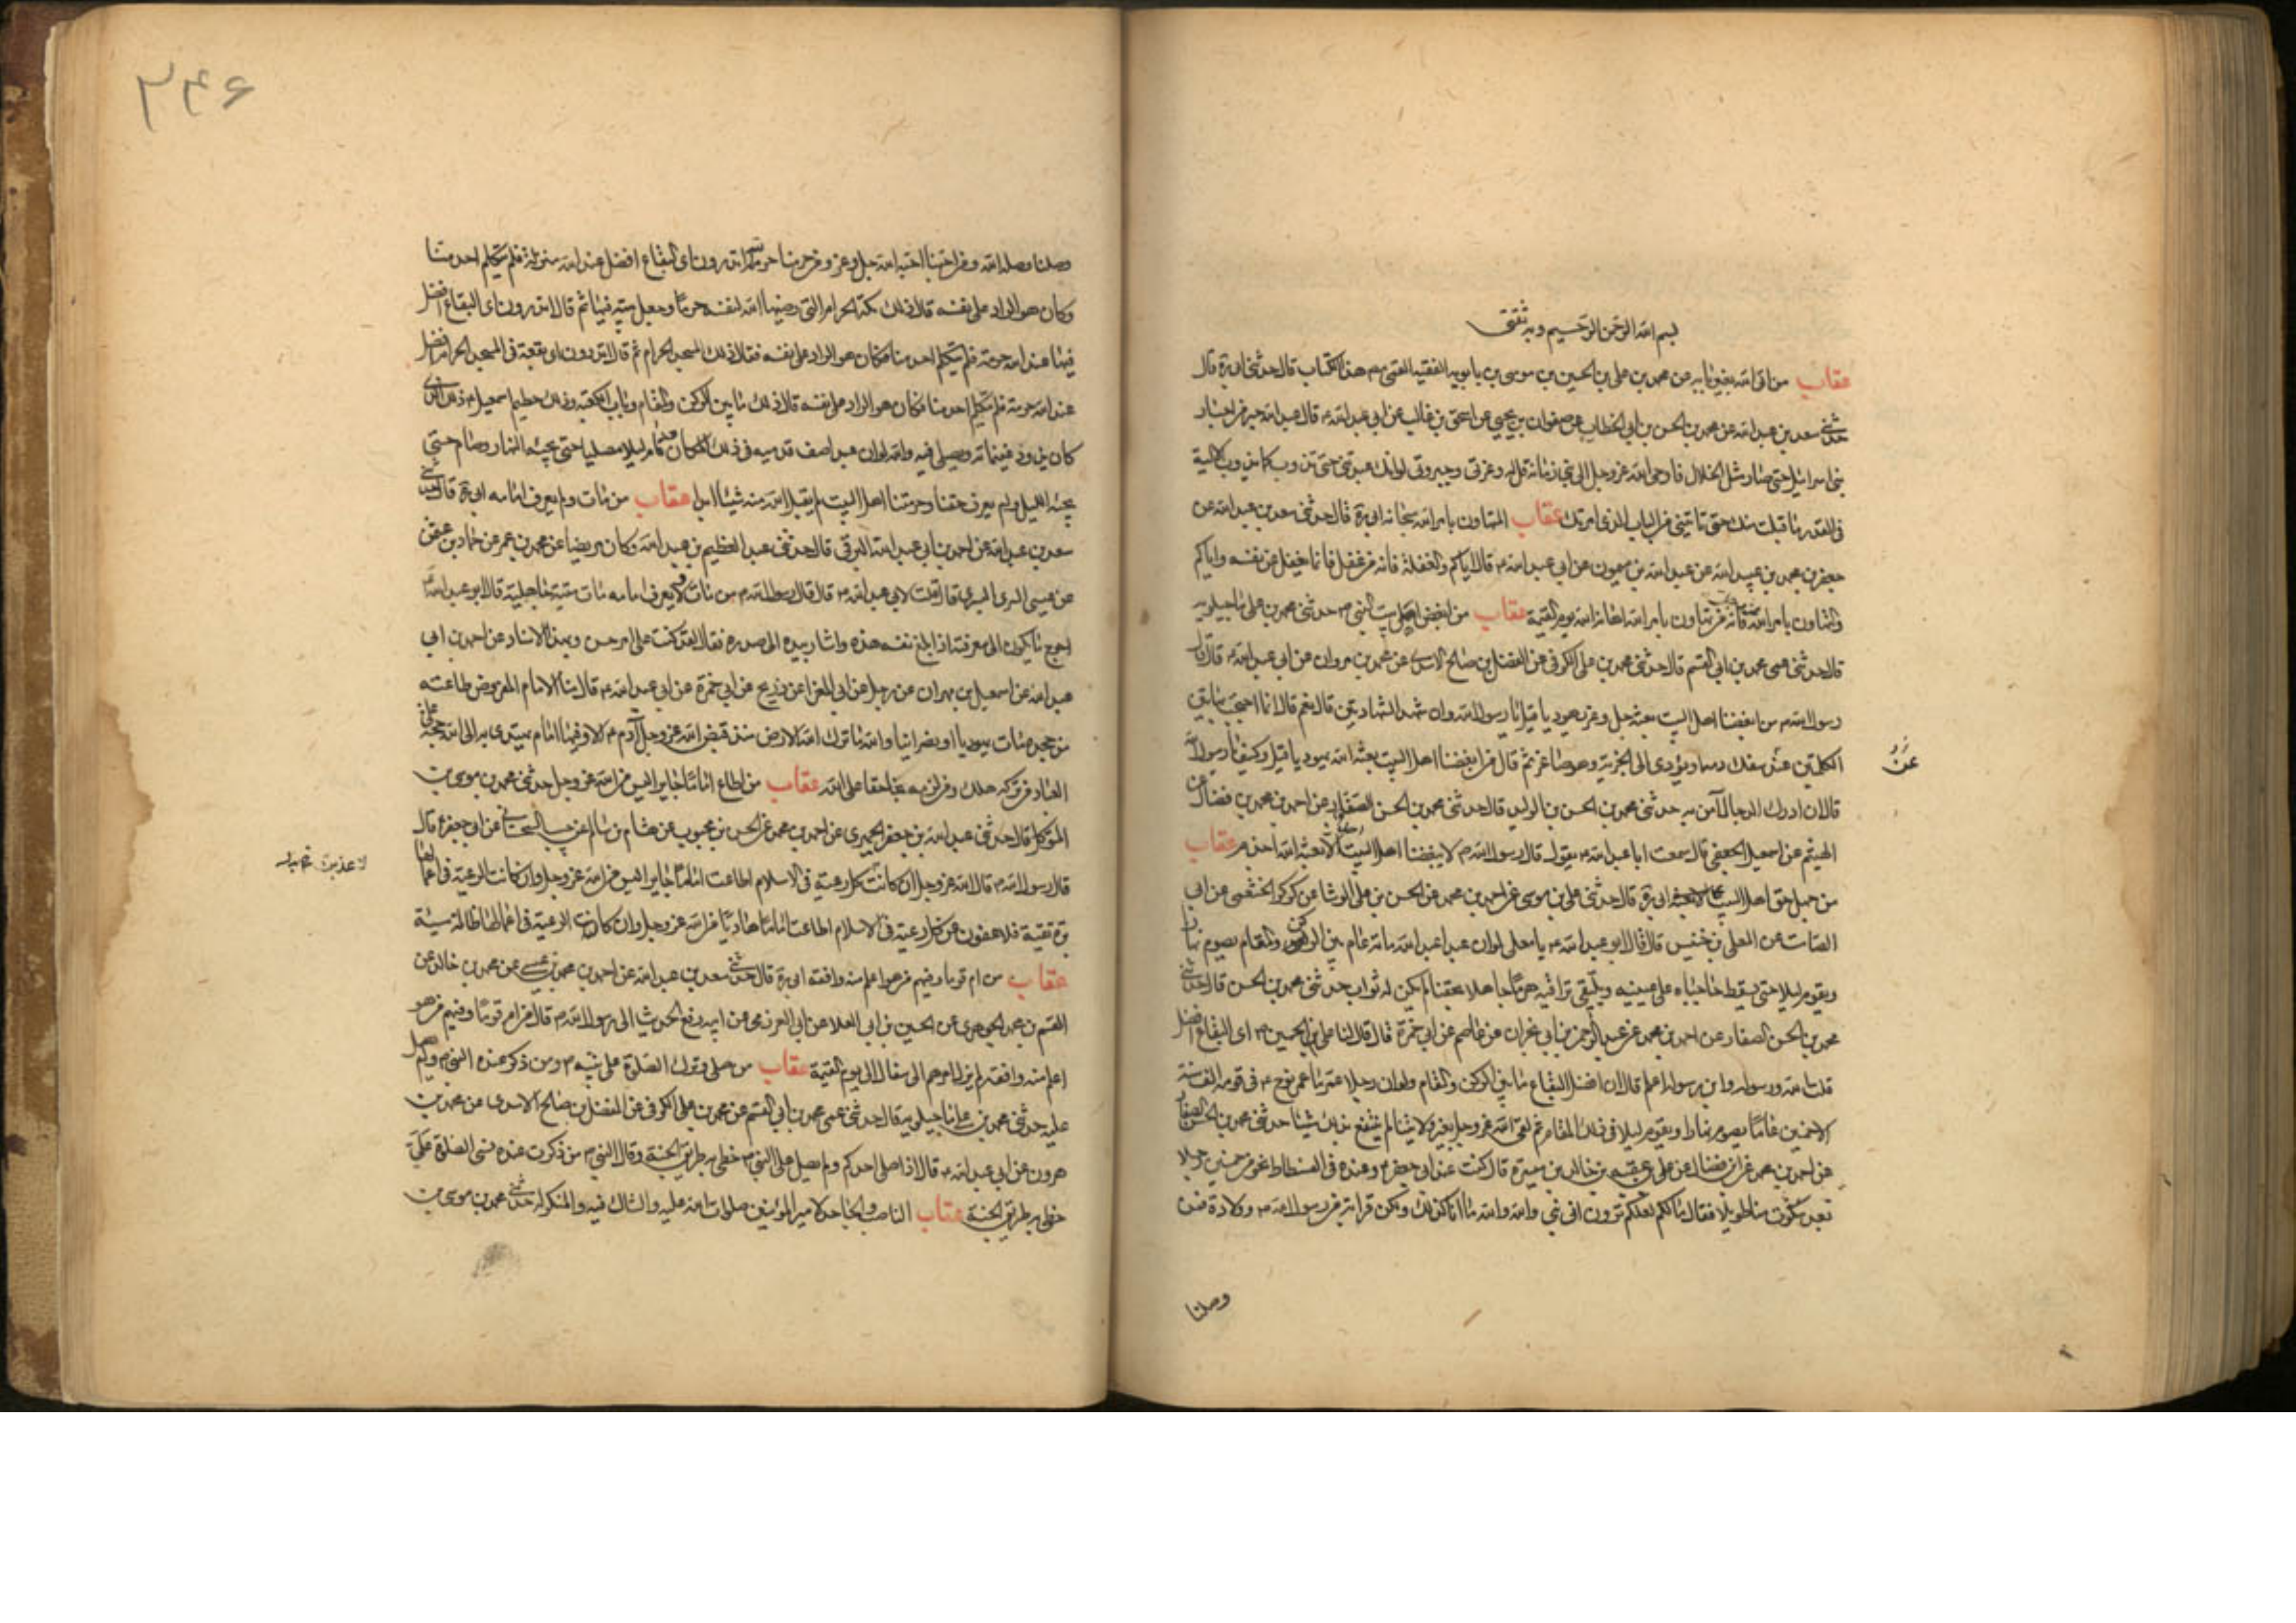 بسم الله الرحمن الرحيم وبه ثقتي
عقاب من اتى الله بغير بابه عن محمد بن علي بن الحسين بن موسى بن بابويه الفقيه القمي مصنف هذا الكتاب قال حدثني ابي ره قال
حدثني سعد بن عبد الله عن محمد بن الحسن بن ابي الخطاب عن صفوان بن يحيى عن اسحق بن غالب عن ابي عبد الله ع قال عبد الله حبر من احبار
بني اسرائيل حتى صار مثل الخلال فاوحى الله عز وجل الى نبي زمانه قل له وعزتي وجبروتي لو انك عبدتني حتى تذوب كما يذوب الالية
في القدر ما قبلت منك حتى تاتيني من الباب الذي امرتك عقاب المتهاون بامر الله سبحانه ابي ره قال حدثني سعد بن عبد الله عن
جعفر بن محمد بن عبيد الله عن عبد الله بن ميمون عن ابي عبد الله ع قال اياكم والغفلة فانه من غفل فانما يغفل عن نفسه واياكم
والتهاون بامر الله فانه من تهاون بامر الله اهانه الله يوم القيمة عقاب من ابغض اهل بيت النبي ص حدثني محمد بن علي ماجيلويه
قال حدثني عمى محمد بن ابي القسم قال حدثني محمد بن علي الكوفي عن الفضل بن صالح الاسدي عن محمد بن مروان عن ابي عبد الله ع قال قال
رسول الله ص من ابغضنا اهل البيت بعثه جل وعز يهوديا قيل يا رسول الله وان شهد الشهادتين قال نعم قال انما احتجب بهاتين
الكلمتين عند سفك دمه او يؤدي الى الجزية وهو صاغر ثم قال من ابغضنا اهل البيت بعثه الله يهوديا قيل وكيف يا رسول الله
عن
قال ان ادرك الدجال آمن به حدثني محمد بن الحسن بن الوليد قال حدثني محمد بن الحسن الصفار عن احمد بن محمد بن فضال عن
الهيثم عن اسمعيل الجعفي قال سمعت ابا عبد الله ع يقول قال رسول الله ص لا يبغضنا اهل البيت احد الا بعثه الله اجذم عقاب
من جهل حق اهل البيت ع ابي ره قال حدثني علي بن موسى عن احمد بن محمد عن الحسن بن علي الوشا عن كركوا الخثعمي عن ابي
الصامت عن المعلى بن خنيس قال قال ابو عبد الله ع يا معلى لو ان عبدا عبد الله مائة عام بين الركن والمقام يصوم نهارا
ويقوم ليلا حتى يسقط حاجباه على عينيه ويلتقي تراقيه هرما جاهلا بحقنا لم يكن له ثواب حدثني محمد بن الحسن قال حدثني
محمد بن الحسن الصفار عن احمد بن محمد عن عبد الرحمن بن ابي نجران عن عاصم عن ابي حمزة قال قال لنا علي بن الحسين ع اي البقاع افضل
قلت الله ورسوله وابن رسوله اعلم قال ان افضل البقاع ما بين الركن والمقام ولو ان رجلا عمر ما عمر نوح ع في قومه الف سنة
الا خمسين عاما يصوم نهارا ويقوم ليلا في ذلك المقام ثم لقي الله عز وجل بغير ولايتنا لم ينتفع بذلك شيئا حدثني محمد بن الحسن الصفار
عن احمد بن محمد عن ابن فضال عن علي بن عقبه بن خالد عن ميسرة قال كنت عند ابي جعفر ع وعنده في الفسطاط نحو من خمسين رجلا
بعد سكوت منا طويلا فقال ما لكم لعلكم ترون اني نبي والله والله ما انا كذلك ولكن قرابة من رسول الله ص وولادة فمن
وصلنا
۲۴۶
وصلنا وصله الله ومن احبنا احبه الله جل وعز ومن حرمنا حرمه الله اتدرون اي البقاع افضل عند الله منزلة فلم يتكلم احد منا
وكان هو الراد على نفسه قال ذلك مكة الحرام التي رضيها الله لنفسه حرما وجعل بيته فيها ثم قال اتدرون اي البقاع افضل
فيها عند الله حرمة فلم يتكلم احد منا فكان هو الراد على نفسه فقال ذلك المسجد الحرام ثم قال اتدرون اي بقعة في المسجد الحرام افضل
عند الله حرمة فلم يتكلم احد منا فكان هو الراد على نفسه قال ذلك ما بين الركن والمقام وباب الكعبة وذلك حطيم اسمعيل ع ذلك الذي
كان يزود فيه غنماته ويصلي فيه والله لو ان عبدا صف قدميه في ذلك المكان قام ليلا مصليا حتى يجيئه النهار وصام حتى
يجيئه الليل ولم يعرف حقنا وحرمتنا اهل البيت لم يقبل الله منه شيئا ابدا عقاب من مات ولم يعرف امامه ابي ره قال حدثني
سعد بن عبد الله عن احمد بن ابي عبد الله البرقي قال حدثني عبد العظيم بن عبد الله وكان مرضيا عن محمد بن عمر عن حماد بن عثمن
عن عيسى السري اليسري قال قلت لابي عبد الله ع قال قال رسول الله ص من مات ولا يعرف امامه مات ميتة جاهلية قال ابو عبد الله ع
احوج ما يكون الى معرفته اذا بلغ نفسه هذه واشار بيده الى صدره فقال لقد كنت على امر حسن وبهذا الاسناد عن احمد بن ابي
عبد الله عن اسمعيل بن مهران عن رجل عن ابي المغرا عن ذريح عن ابي حمزة عن ابي عبد الله ع قال منا الامام المفروض طاعته
من جحده مات يهوديا او نصرانيا والله ما ترك الله الارض منذ قبض الله عز وجل آدم ع الا وفيها امام يهتدى به الى الله حجة على
العباد من تركه هلك ومن لزمه نجا حقا على الله عقاب من اطاع اماما جايرا ليس من الله عز وجل حدثني محمد بن موسى بن
المتوكل قال حدثني عبد الله بن جعفر الحميري عن احمد بن محمد عن الحسن بن محبوب عن هشام بن سالم عن حبيب السجستاني عن ابي جعفر ع قال
قال رسول الله ص قال الله عز وجل ان كانت كل رعية في الاسلام اطاعت اماما جايرا ليس من الله عز وجل وان كانت الرعية في اعمالها
برة تقية فلا عفون عن كل رعية في الاسلام اطاعت اماما هاديا من الله عز وجل وان كانت الرعية في اعمالها ظالمة سيئة
عقاب من ام قوما وفيهم من هو اعلم منه وافقه ابي ره قال حدثني سعد بن عبد الله عن احمد بن محمد بن عيسى عن محمد بن خالد عن
القسم بن محمد الجوهري عن الحسين بن ابي العلا عن ابي العرزمي عن ابيه رفع الحديث الى رسول الله ص قال من ام قوما وفيهم من هو
اعلم منه وافقه لم يزل امرهم الى سفال الى يوم القيمة عقاب من صلى وترك الصلوة على نبيه ص ومن ذكر عنده النبي ص ولم يصل
عليه حدثني محمد بن علي ماجيلويه قال حدثني عمى محمد بن ابي القسم عن محمد بن علي الكوفي عن المفضل بن صالح الاسدي عن محمد بن
هرون عن ابي عبد الله ع قال اذا صلى احدكم ولم يصل على النبي ص خطئ به طريق الجنة وقال النبي ص من ذكرت عنده فنسي الصلوة علي
خطئ به طريق الجنة عقاب الناصب والجاحد لامير المؤمنين صلوات الله عليه والشاك فيه والمنكر له حدثني محمد بن موسى بن